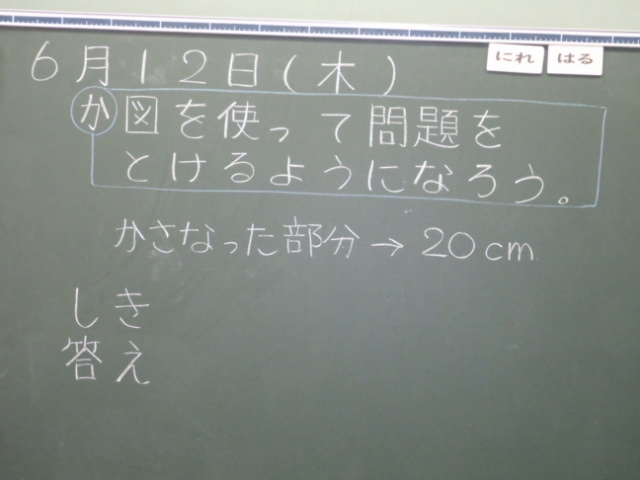 6月12日(木)
にれ はる
か 図を使って問題を
とけるようになろう。
かさなった部分→20cm
しき
答え